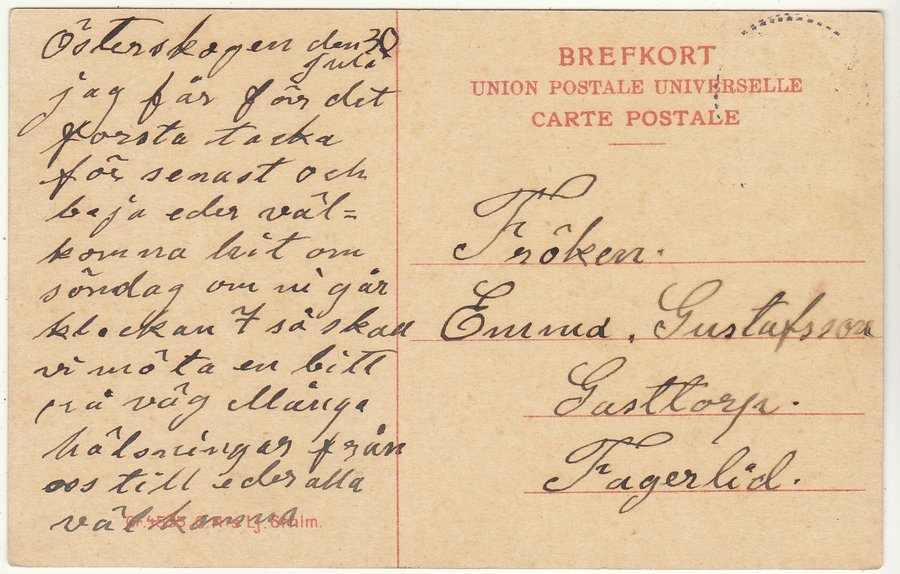 Österskogen den 30
juli
jag får för det
forsta tacka
för senast och
beja eder väl=
komna hit om
söndag om ni går
klockan 7 så skall
vi möta en bitt
på väg Många
hälsningar från
oss till eder alla
välkomna
BREFKORT
UNION POSTALE UNIVERSELLE
CARTE POSTALE
Fröken.
Emma. Gustafsson
Gusttorp.
Fagerlid.
Sthlm.